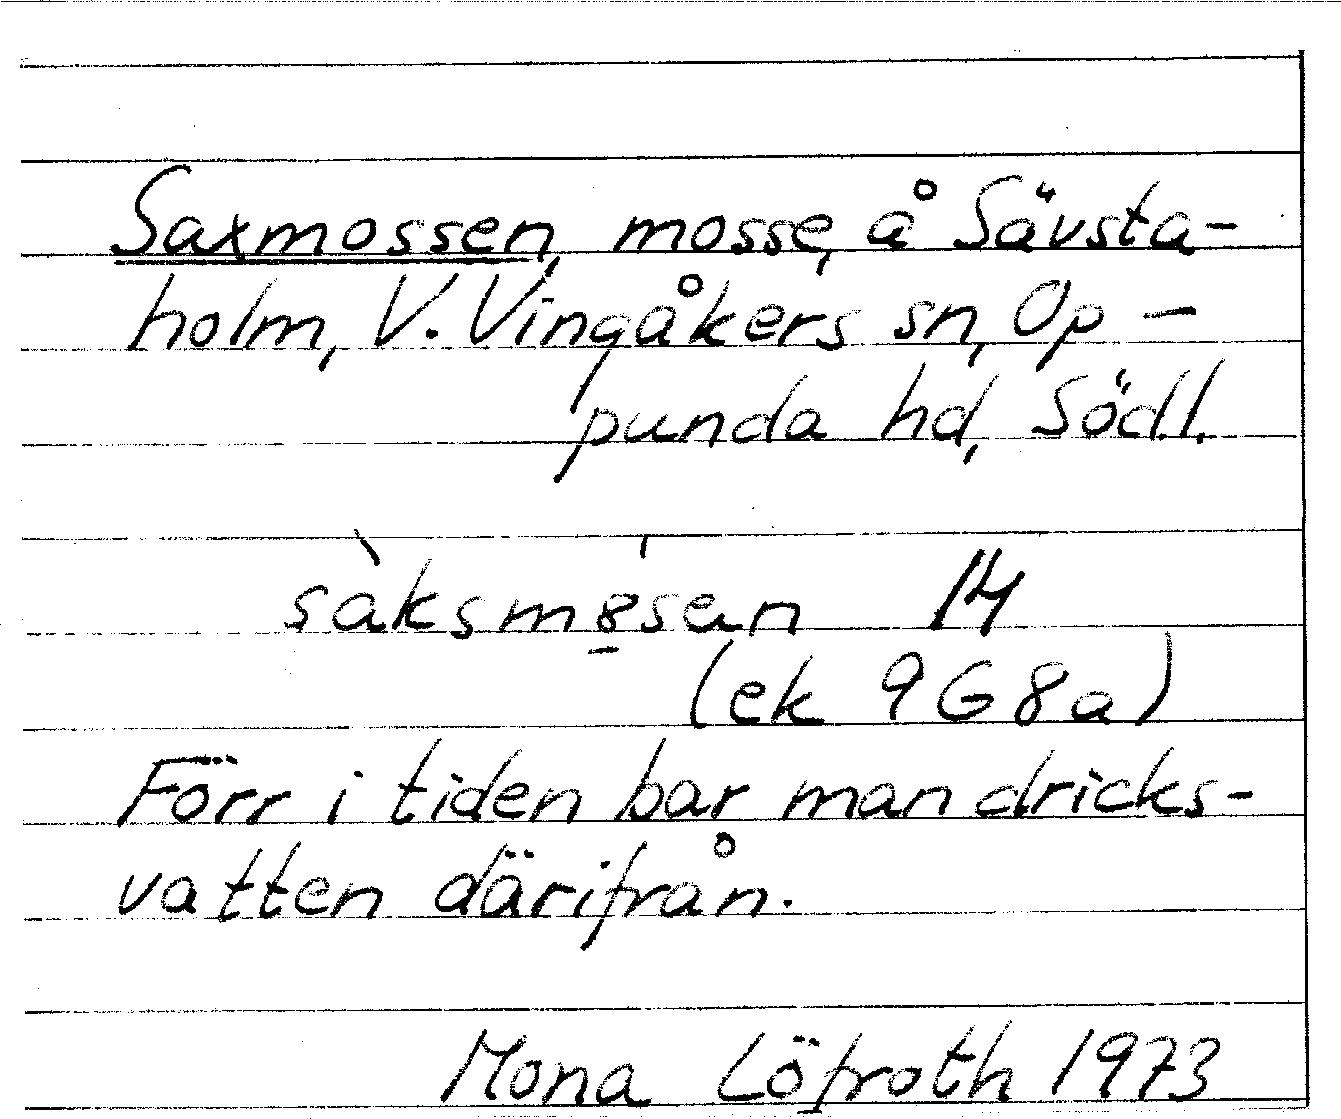 Saxmossen, mosse, å Sävsta-
holm, V. Vingåkers sn, Op-
punda hd, Södl.
14
(ek 9G8a)
Förr i tiden bar man dricks-
vatten därifrån.
Mona Löfroth 1973